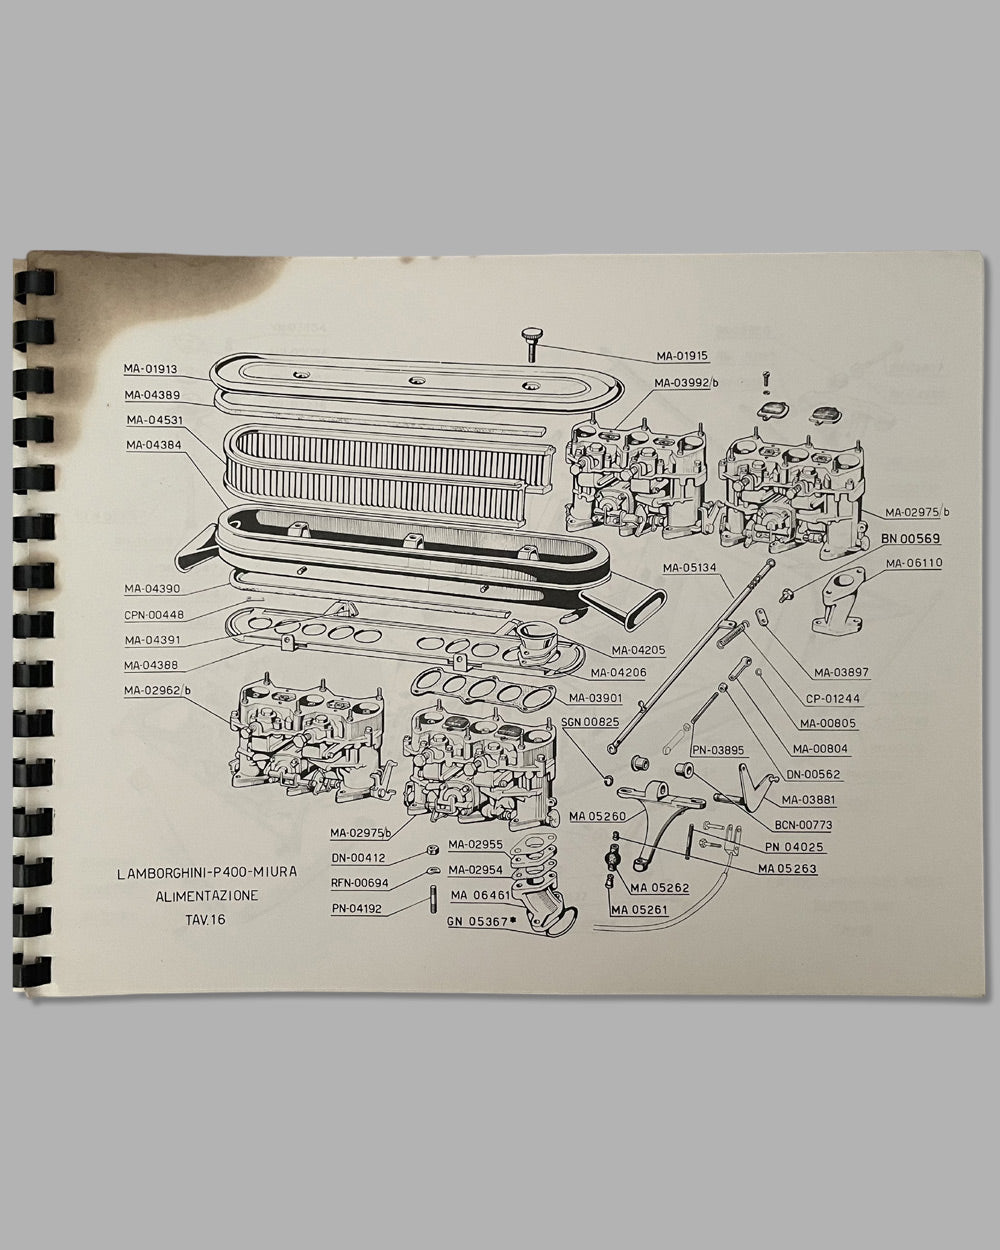 MA-01913
MA-04389
MA-04531
MA-04384
MA-01915
MA-03992/b
MA-02975/b
BN 00569
MA-06110
MA-05134
MA-04390
CPN-00448
MA-04391
MA-04388
MA-02962/b
MA-04205
MA-04206
MA-03901
SGN 00825
MA-03897
CP-01244
MA-00805
MA-00804
PN-03895
DN-00562
MA-03881
BCN-00773
PN 04025
MA 05263
MA 05260
MA 05262
MA 05261
MA-02975/b
DN-00412
RFN-00694
PN-04192
MA-02955
MA-02954
MA 06461
GN 05367*
LAMBORGHINI-P400-MIURA
ALIMENTAZIONE
TAV.16